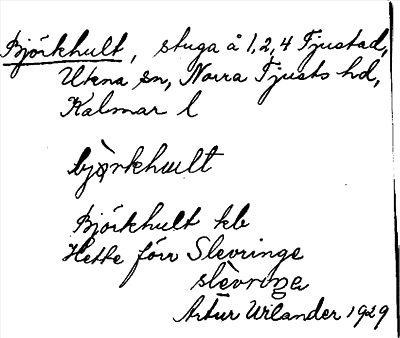 Björkhult, stuga å 1, 2, 4 Tjustad,
Ukna sn, Norra Tjusts hd,
Kalmar l
bjö̀rkhult
Björkhult kb
Hette förr Slevringe
slèvriŋa
Artur Wilander 1929